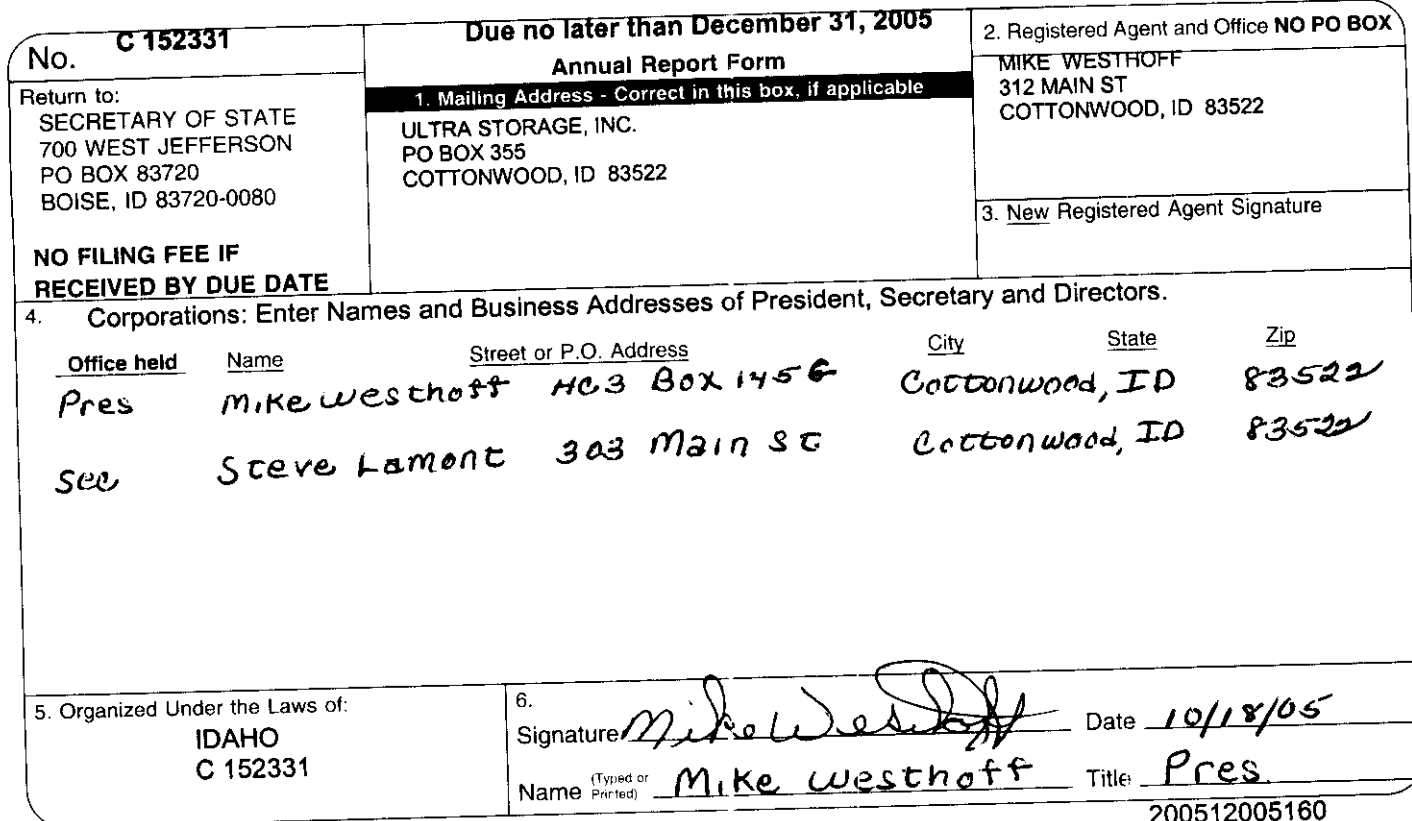 No. C 152331
Return to:
SECRETARY OF STATE
700 WEST JEFFERSON
PO BOX 83720
BOISE, ID 83720-0080
NO FILING FEE IF
RECEIVED BY DUE DATE
Due no later than December 31, 2005
Annual Report Form
1. Mailing Address - Correct in this box, if applicable
ULTRA STORAGE, INC.
PO BOX 355
COTTONWOOD, ID 83522
2. Registered Agent and Office NO PO BOX
MIKE WESTHOFF
312 MAIN ST
COTTONWOOD, ID 83522
3. New Registered Agent Signature
4. Corporations: Enter Names and Business Addresses of President, Secretary and Directors.
Office held Name Street or P.O. Address City State Zip
Pres Mike Westhoff HC3 Box Cottonwood, ID 83522
Sec Steve Lamont 303 Main St Cottonwood, ID 83522
5. Organized Under the Laws of:
IDAHO
C 152331
6.
Signature Mike Westhoff Date 10/18/05
Name (Typed or Printed) Mike Westhoff Title Pres.
200512005160